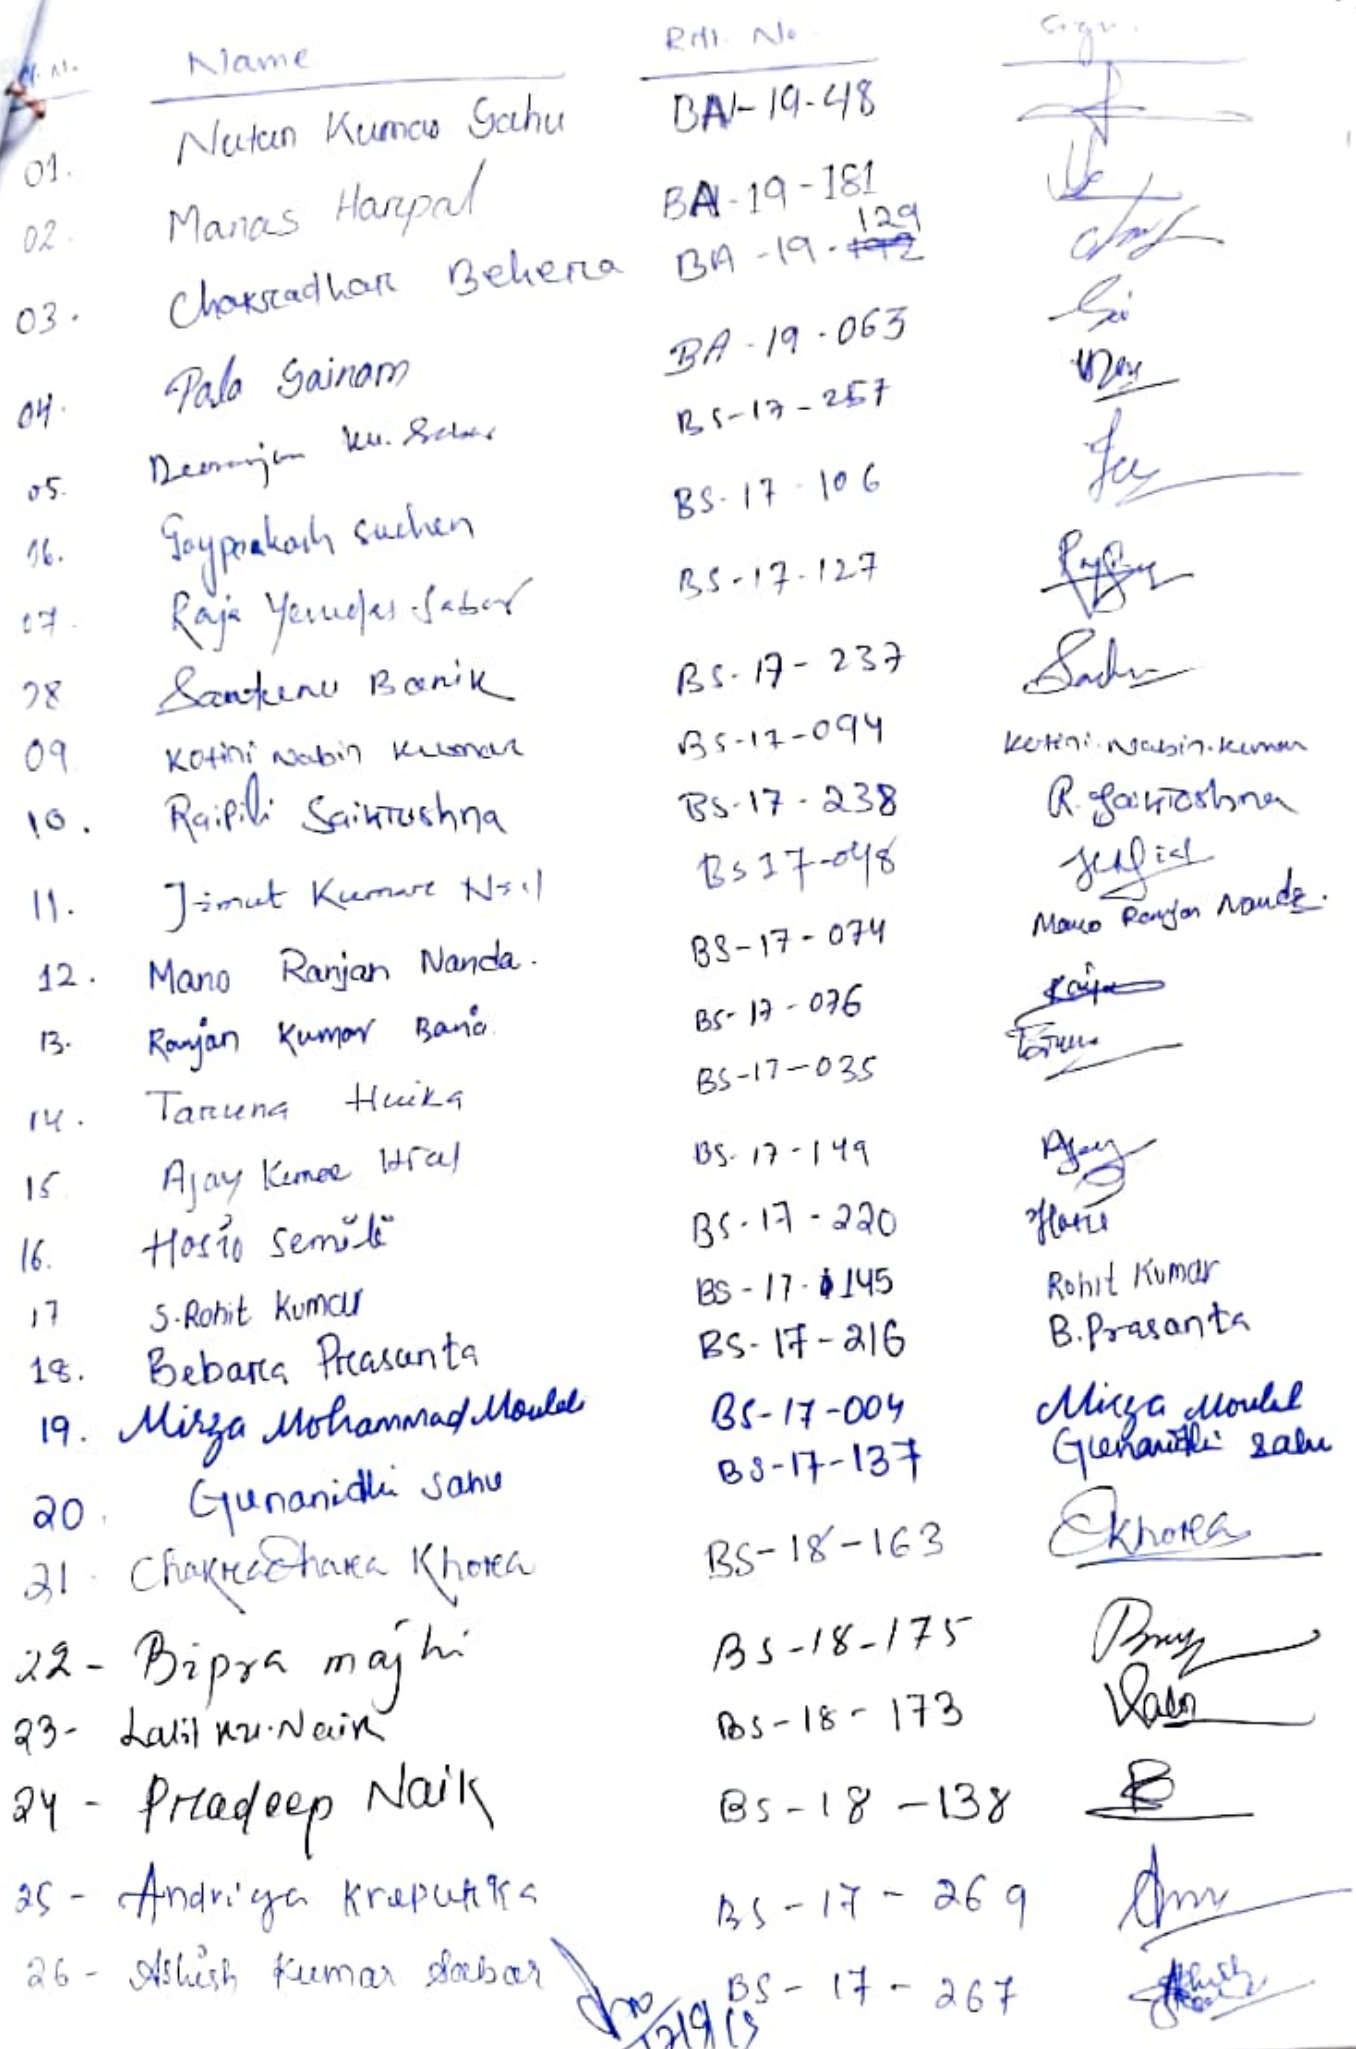 Sl. No. Name Roll. No. Sign.
01. Nutan Kumar Sahu BA-19-48
02. Manas Haripal BA-19-181
03. Chakradhar Behera BA-19-129
04. Pala Sairam BA-19-063
05. Ku. Sabar BS-17-257
06. Joyprakash Suchen BS-17-106
07. Raja Sabar BS-17-127
08 Santanu Banik BS-17-237
09 Kotini Nabin Kumar BS-17-094 Kotini Nabin Kumar
10. Raipili Saikrushna BS-17-238 R. Saikrushna
11. Jimut Kumar BS 17-048
12. Mano Ranjan Nanda. BS-17-074 Mano Ranjan Nanda.
13. Ranjan Kumar BS-17-076
14. Taruna Huika BS-17-035
15 Ajay Kumar BS-17-149 Ajay
16. BS-17-220
17 S. Rohit Kumar BS-17-145 Rohit Kumar
18. Bebarta Prasanta BS-17-216 B. Prasanta
19. Mirza Mohammad BS-17-004 Mirza
20. Gunanidhi Sahu BS-17-137 Gunanidhi Sahu
21. Chakradhara Khora BS-18-163 Khora
22- Bipra majhi BS-18-175
23- Lalit Ku. Naik BS-18-173
24- Pradeep Naik BS-18-138
25- Andriya BS-17-269
26- Ashish Kumar Sabar BS-17-267